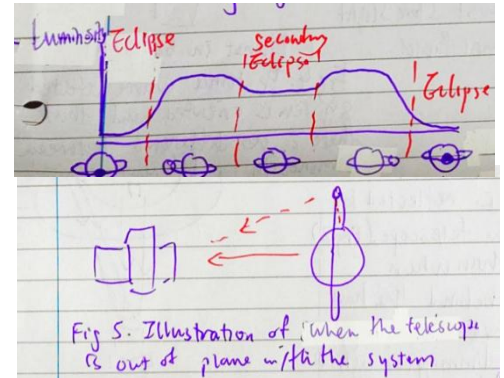 Luminosity
Eclipse
Secondary
Eclipse
Eclipse
Fig 5. Illustration of when the telescope
is out of plane with the system